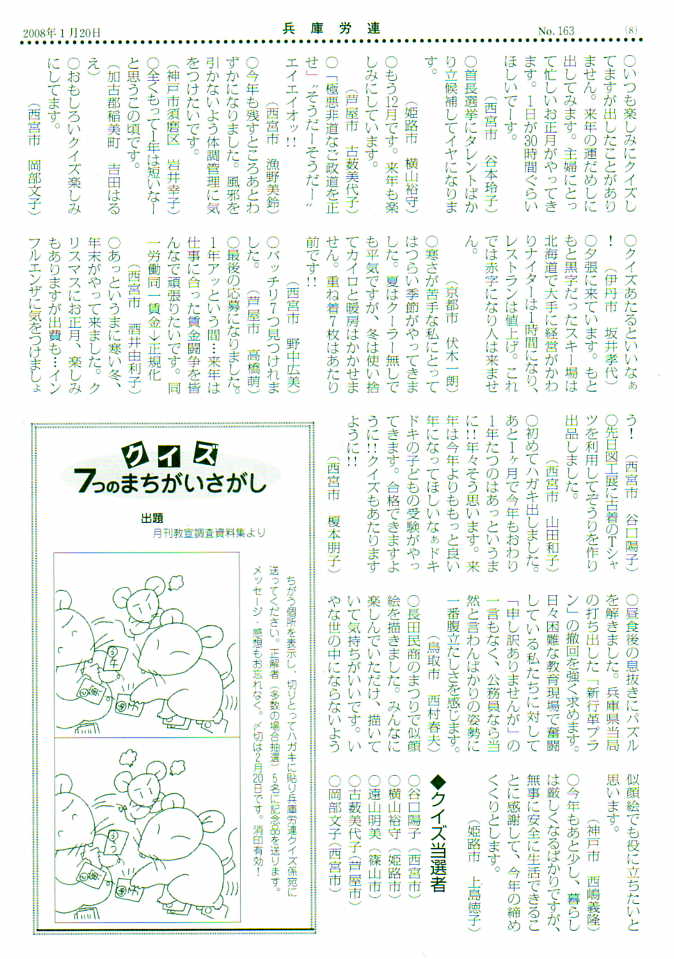 2008年1月20日
兵庫労連
No.163
(8)
○いつも楽しみにクイズし
てますが出したことがあり
ません。来年の運だめしに
出してみます。主婦にとっ
て忙しいお正月がやってき
ます。1日が30時間ぐらい
ほしいでーす。
(西宮市 谷本玲子)
○首長選挙にタレントばか
り立候補してイヤになりま
す。
(姫路市 横山裕守)
○もう12月です。来年も楽
しみにしています。
(芦屋市 古薮美代子)
○「極悪非道なご政道を正
せ」"そうだーそうだー"
エイエイオッ!!
(西宮市 漁野美鈴)
○今年も残すところあとわ
ずかになりました。風邪を
引かないよう体調管理に気
をつけたいです。
(神戸市須磨区 岩井幸子)
○全くもって1年は短いなー
と思うこの頃です。
(加古郡稲美町 吉田はる
え)
○おもしろいクイズ楽しみ
にしてます。
(西宮市 岡部文子)
○クイズあたるといいなぁ
! (伊丹市 坂井孝代)
○夕張に来ています。もと
もと黒字だったスキー場は
北海道で大手に経営がかわ
りナイターは1時間になり、
レストランは値上げ。これ
では赤字になり人は来ませ
ん。
(京都市 伏木一朗)
○寒さが苦手な私にとって
はつらい季節がやってきま
した。夏はクーラー無しで
も平気ですが、冬は使い捨
てカイロと暖房はかかせま
せん。重ね着7枚はあたり
前です!!
(西宮市 野中広美)
○バッチリ7つ見つけれま
した。 (芦屋市 高橋萌)
○最後の応募になりました。
1年アッという間…来年は
仕事に合った賃金闘争を皆
んなで頑張りたいです。同
一労働同一賃金→正規化
(西宮市 酒井由利子)
○あっというまに寒い冬、
年末がやって来ました。ク
リスマスにお正月、楽しみ
もありますが出費も…イン
フルエンザに気をつけましょ
う! (西宮市 谷口陽子)
○先日図工展に古着のTシャ
ツを利用してぞうりを作り
出品しました。
(西宮市 山田和子)
○初めてハガキ出しました。
あと1ヶ月で今年もおわり
1年たつのはあっというま
に!!年々そう思います。来
年は今年よりももっと良い
年になってほしいなぁドキ
ドキの子どもの受験がやっ
てきます。合格できますよ
うに!!クイズもあたります
ように!!
(西宮市 榎本朋子)
○昼食後の息抜きにパズル
を解きました。兵庫県当局
の打ち出した「新行革プラ
ン」の撤回を強く求めます。
日々困難な教育現場で奮闘
している私たちに対して
「申し訳ありませんが」の
一言もなく、公務員なら当
然と言わんばかりの姿勢に
一番腹立たしさを感じます。
(鳥取市 西村春夫)
○長田民商のまつりで似顔
絵を描きました。みんなに
楽しんでいただけ、描いて
いて気持ちがいいです。い
やな世の中にならないよう
似顔絵でも役に立ちたいと
思います。
(神戸市 西嶋義隆)
○今年もあと少し、暮らし
は厳しくなるばかりですが、
無事に安全に生活できるこ
とに感謝して、今年の締め
くくりとします。
(姫路市 上島徳子)
◆クイズ当選者
○谷口陽子(西宮市)
○横山裕守(姫路市)
○遠山明美(篠山市)
○古薮美代子(芦屋市)
○岡部文子(西宮市)
クイズ
7つのまちがいさがし
出題
月刊教宣調査資料集より
ちがう個所を表示し、切りとってハガキに貼り兵庫労連クイズ係宛に
送ってください。正解者(多数の場合抽選)5名に記念品を送ります。
メッセージ・感想もお忘れなく。〆切は2月20日です。消印有効!